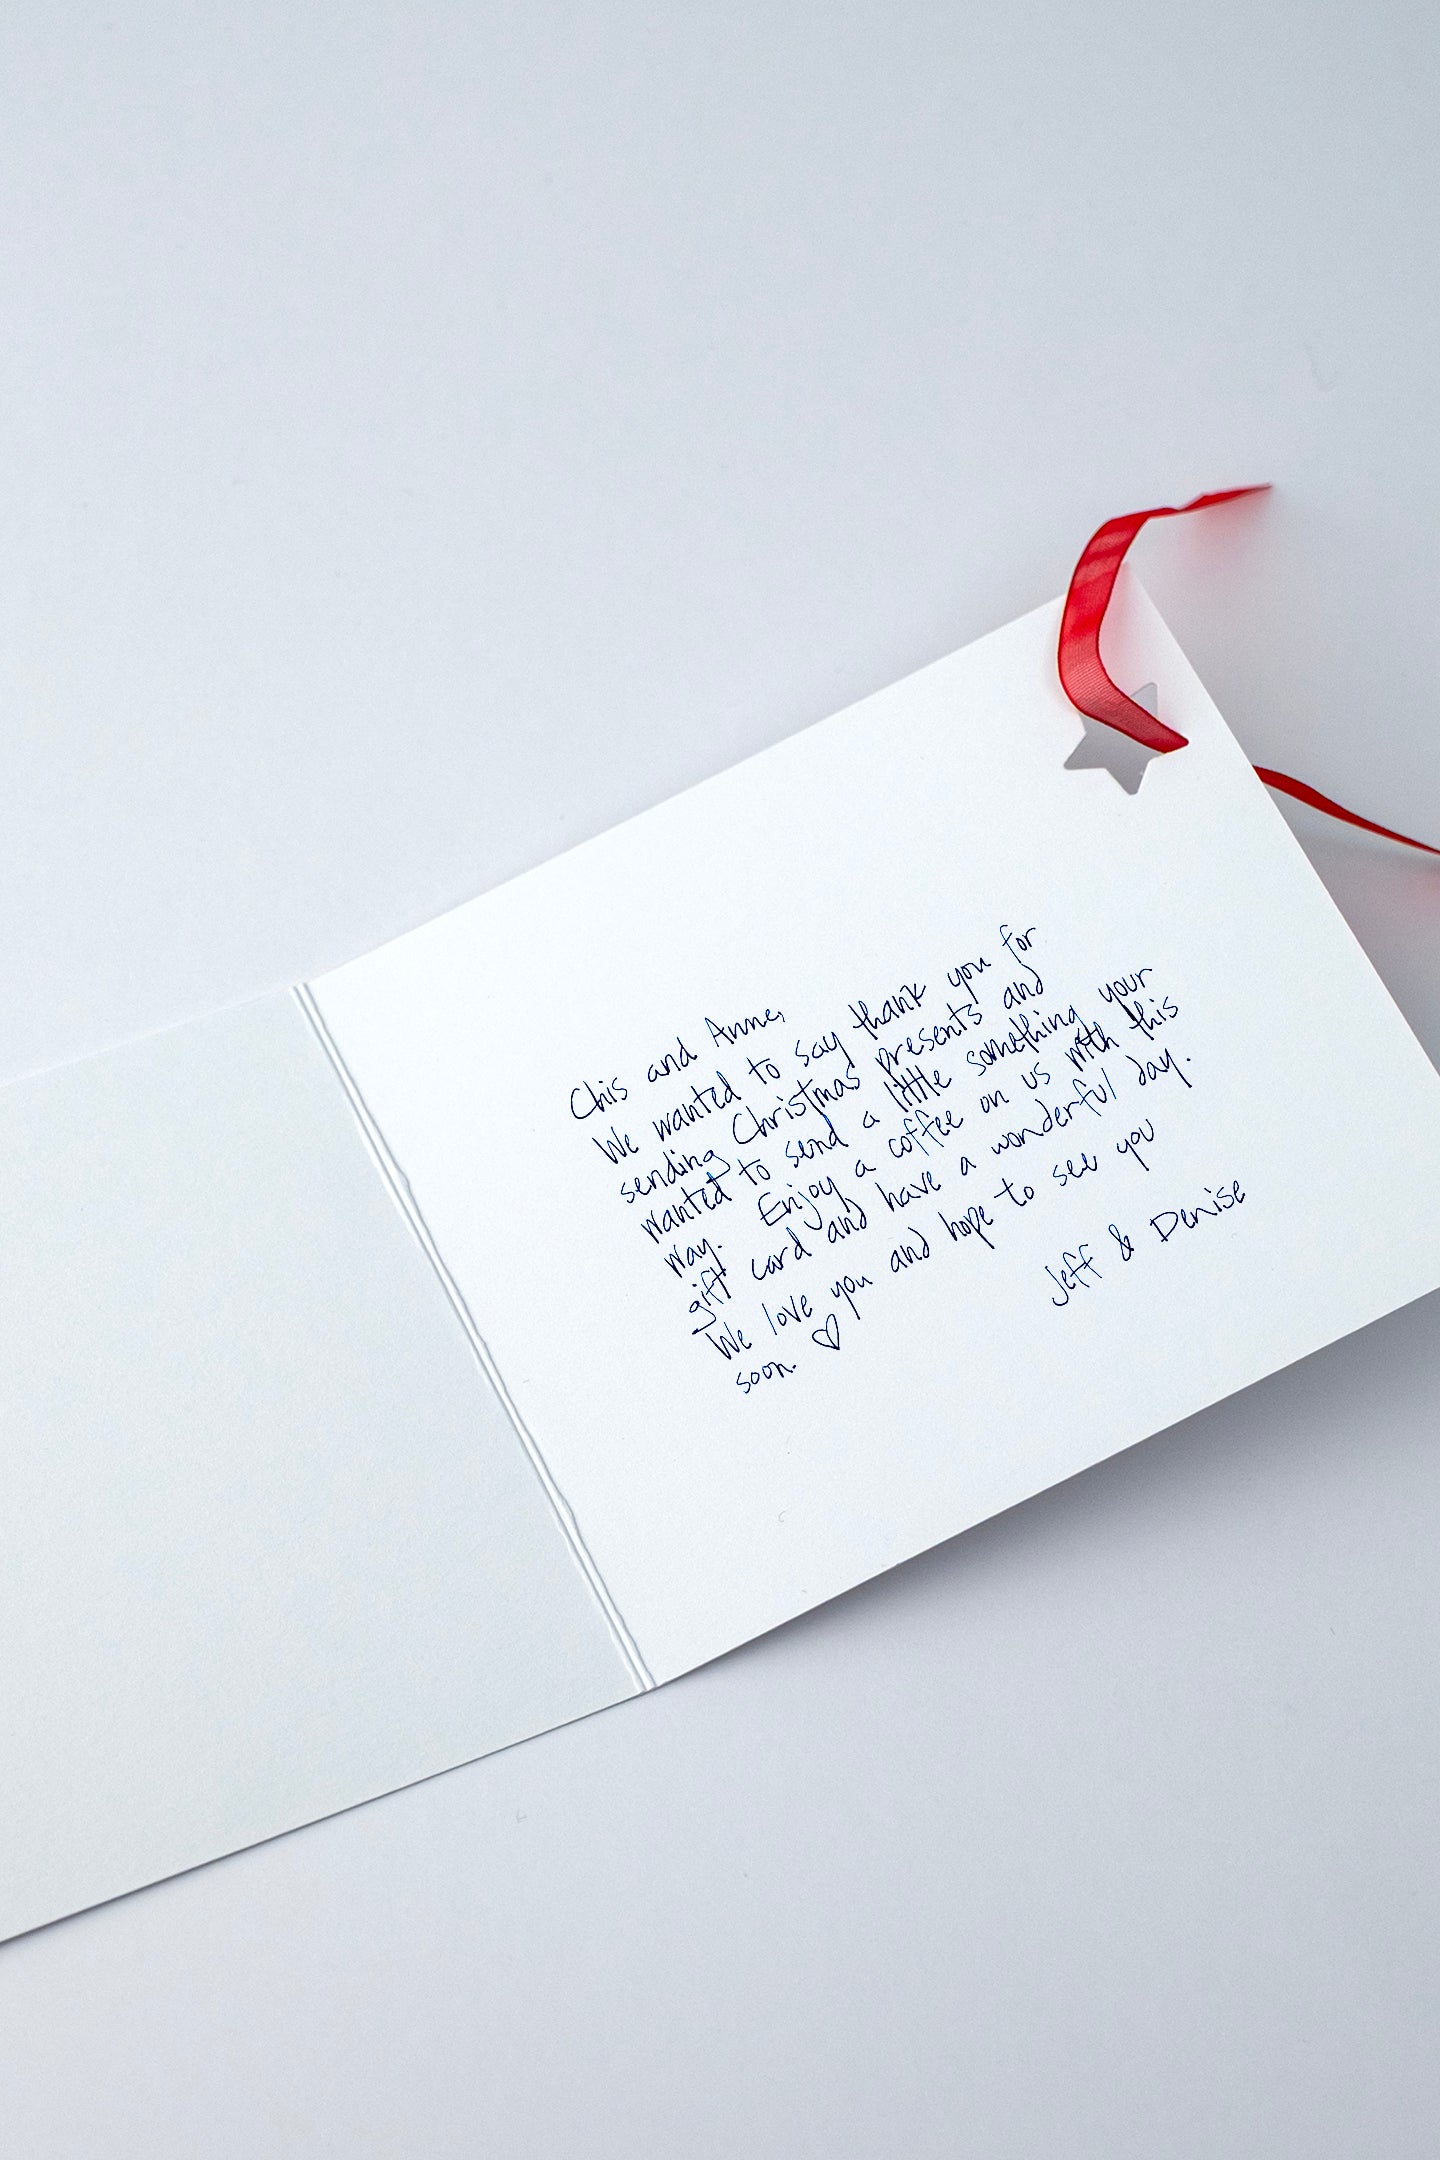 Chis and Anne,
We wanted to say thank you for
sending Christmas presents and
wanted to send a little something your
way. Enjoy a coffee on us with this
gift card and have a wonderful day.
We love you and hope to see you
soon. ♡
Jeff & Denise